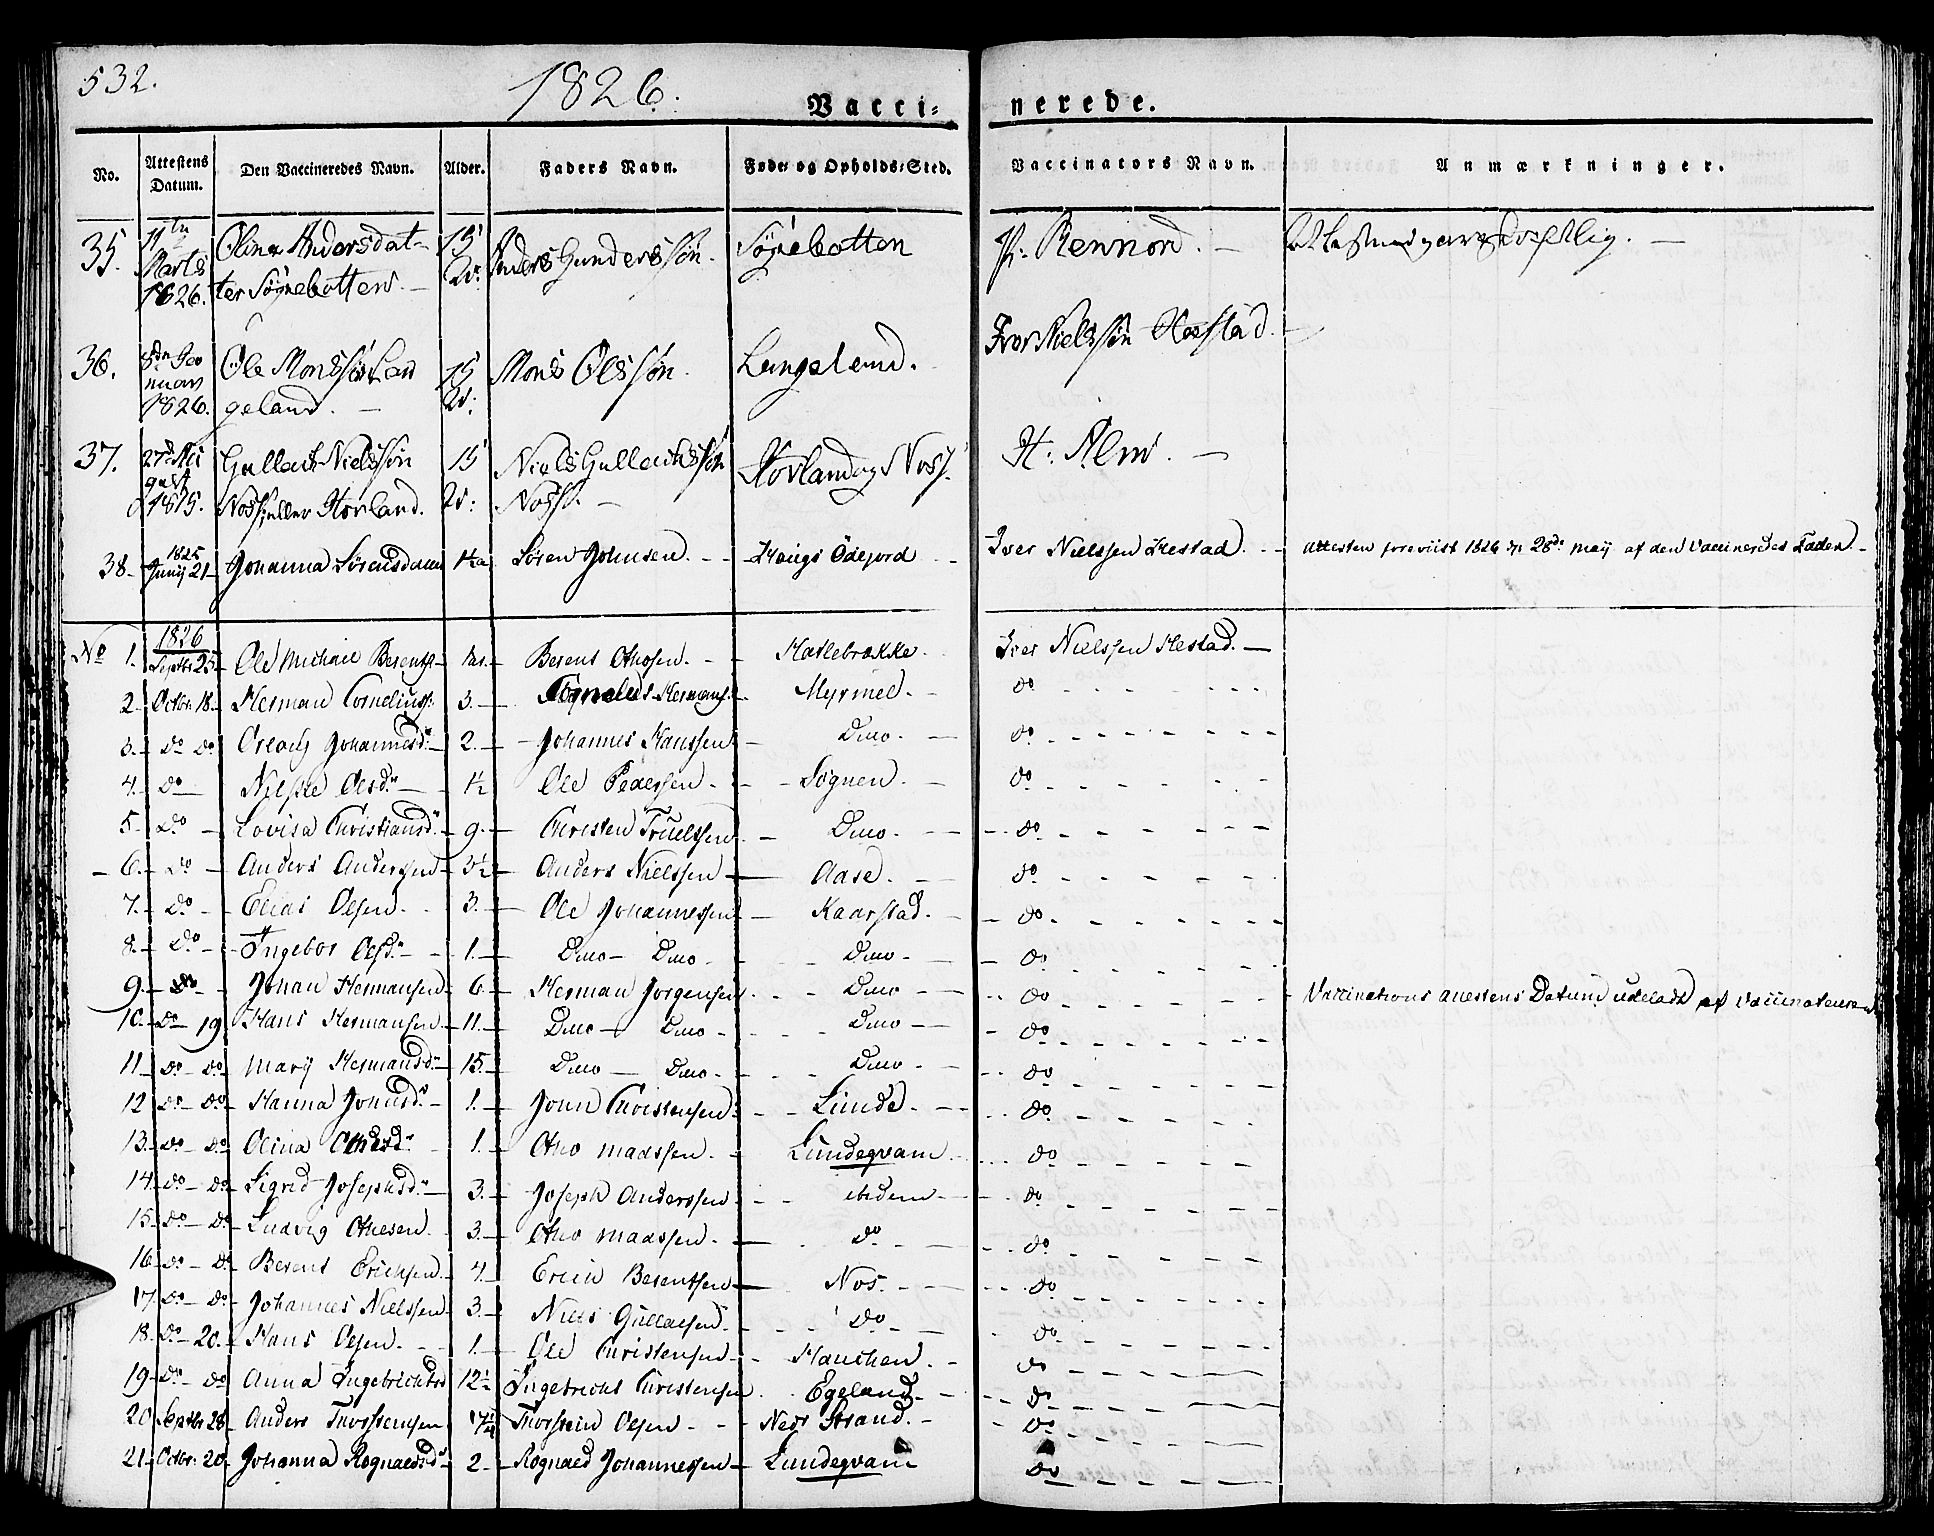 532.
1826.
Vacci- nerede.
No. Attestens Datum. Den Vaccineredes Navn. Alder. Faders Navn. Føde- og Opholds-Sted. Vaccinators Navn. Anmærkninger.
35. 11te Marts 1826. Olina Andersdatter Søgnebotten. 15 Anders Gundersson. Søgnebotten Pr. Rennord.
36. 8de Januar 1826. Ole Monssøn Langeland. 15 Mons Olssøn. Langeland. Iver Nielssøn Hestad.
37. 27de August 1815. Gullach Nielssøn Noss eller Hovland. 15 Niels Gullachssøn Noss. Hovland og Noss. H. Alm.
38. 1825 Junij 21 Johanna Sørensdatter 14 Søren Johnsen. Hougs Ødejord Iver Nielssen Hestad. Attesten foreviist 1826 28de Maij af den Vaccineredes Fader.
No 1. 1826 Septbr 25 Ole Michael Berents. Berent Othosen. Haslebrække. Iver Nielssen Hestad.
2. Octbr. 18. Herman Corneliuss. 3. Cornelius Hermans. Myrmel. do
3. do do Johannesdr. 2. Johannes Hanssen Ditto. do
4. do Olsdr. 1½ Ole Pedersen. Søgnen. do
5. do Lovisa Christiansdr. 9. Christen Truelssen Ditto. do
6. do Anders Andersen 3½ Anders Nielssen Aase. do
7. do Elias Olsen. 3. Ole Johannessen Kaarstad. do
8. do Ingebor Olsdr. 1. Ditto Ditto Ditto do
9. do Johan Hermansen 6. Herman Jørgensen Ditto do Vaccinations Attestens Datum udeladt af Vaccinateuren
10. do 19 Hans Hermansen 11. Ditto Ditto Ditto do
11. do do Marij Hermansdr. 15. Ditto Ditto Ditto do
12 do do Hanna Johnsdr. 1. John Christensen. Lunde. do
13. do do Olina Othesdr. 1. Otho Madssen. Lundeqvam do
14. do do Sigrid Josephsdr. 3. Joseph Anderssen ibidem do
15. do do Ludvig Othesen. 3. Otho Madssen. do do
16 do do Berent Erichsen. 4. Erich Berentsen Nos. do
17. do do Johannes Nielssen 3. Niels Gullacsen. do do
18. do 20. Hans Olsen. 1. Ole Christensen do
19. do do Anna Ingebrichtsd 12½ Ingebricht Christensen Egeland. do
20 Septbr 28 Anders Thorstensen Thorstein Olsen Ned: Strand. do
21. Octbr. 20 Johanna Rognaldsdr. 2 Rognald Johannessen Lundeqvam do